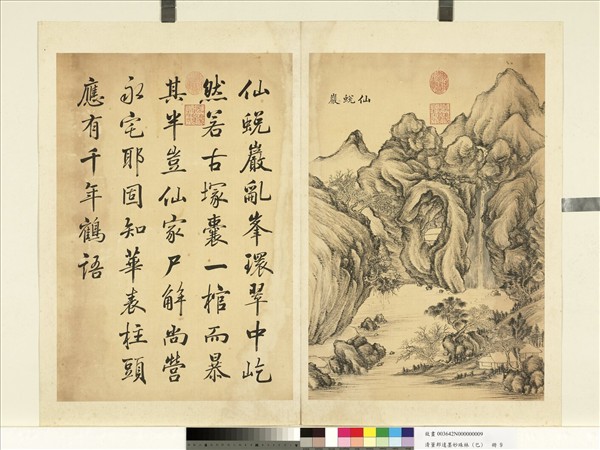 仙蛻巖亂峯環翠中屹
然若古塚囊一棺而暴
其半豈仙家尸解尚營
永宅耶固知華表柱頭
應有千年鶴語
仙蛻巖
故畫003642N000000009
清董邦達墨妙珠林(巳) 冊 9